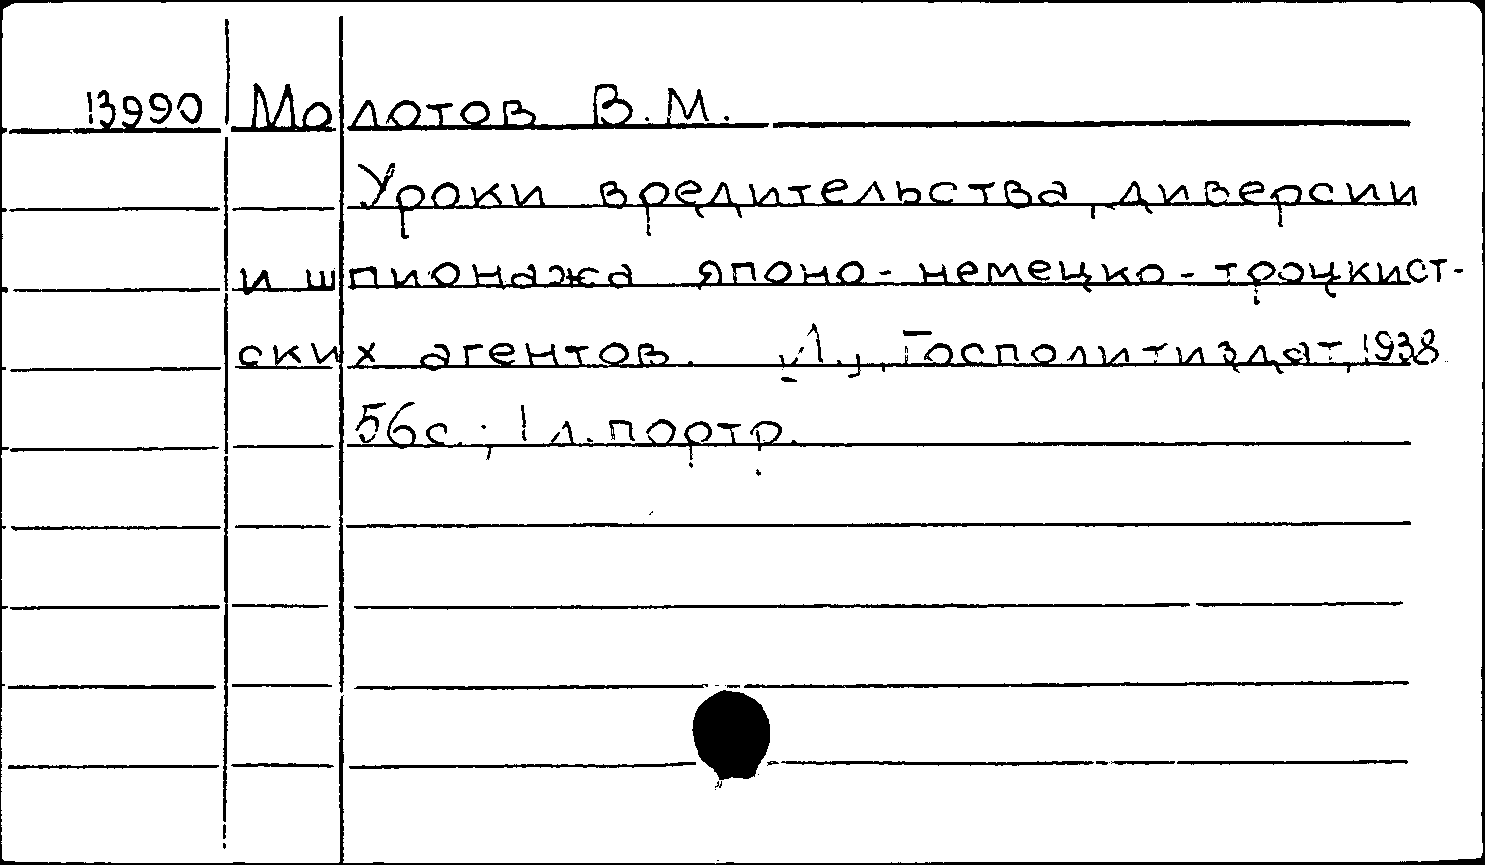 13990 Молотов В.М.
Уроки вредительства, диверсии
и шпионажа японо-немецко-троцкист-
ских агентов. Л., Госполитиздат, 1938
56с.; 1 л. портр.